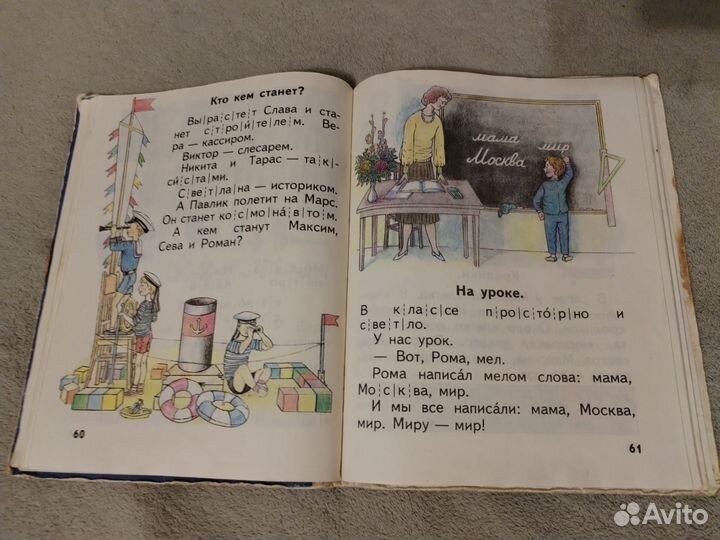 Кто кем станет?
Вы|ра|с|те|т Слава и ста-
нет с|т|ро|и́|те|ле|м. Ве-
ра — кассиром.
Виктор — слесарем.
Никита и Тарас — та|к|-
си́|с|та|ми.
С|ве|т|ла|на — историком.
А Павлик полетит на Марс.
Он станет ко|с|мо|на́|в|то|м.
А кем станут Максим,
Сева и Роман?
60
мама мир
Москва
На уроке.
В к|ла́|с|се п|ро|с|то́|р|но и
с|ве|т|ло́.
У нас урок.
— Вот, Рома, мел.
Рома написа́л мелом слова: мама,
Мо|с|к|ва, мир.
И мы все написа́ли: мама, Москва,
мир. Миру — мир!
61
Avito